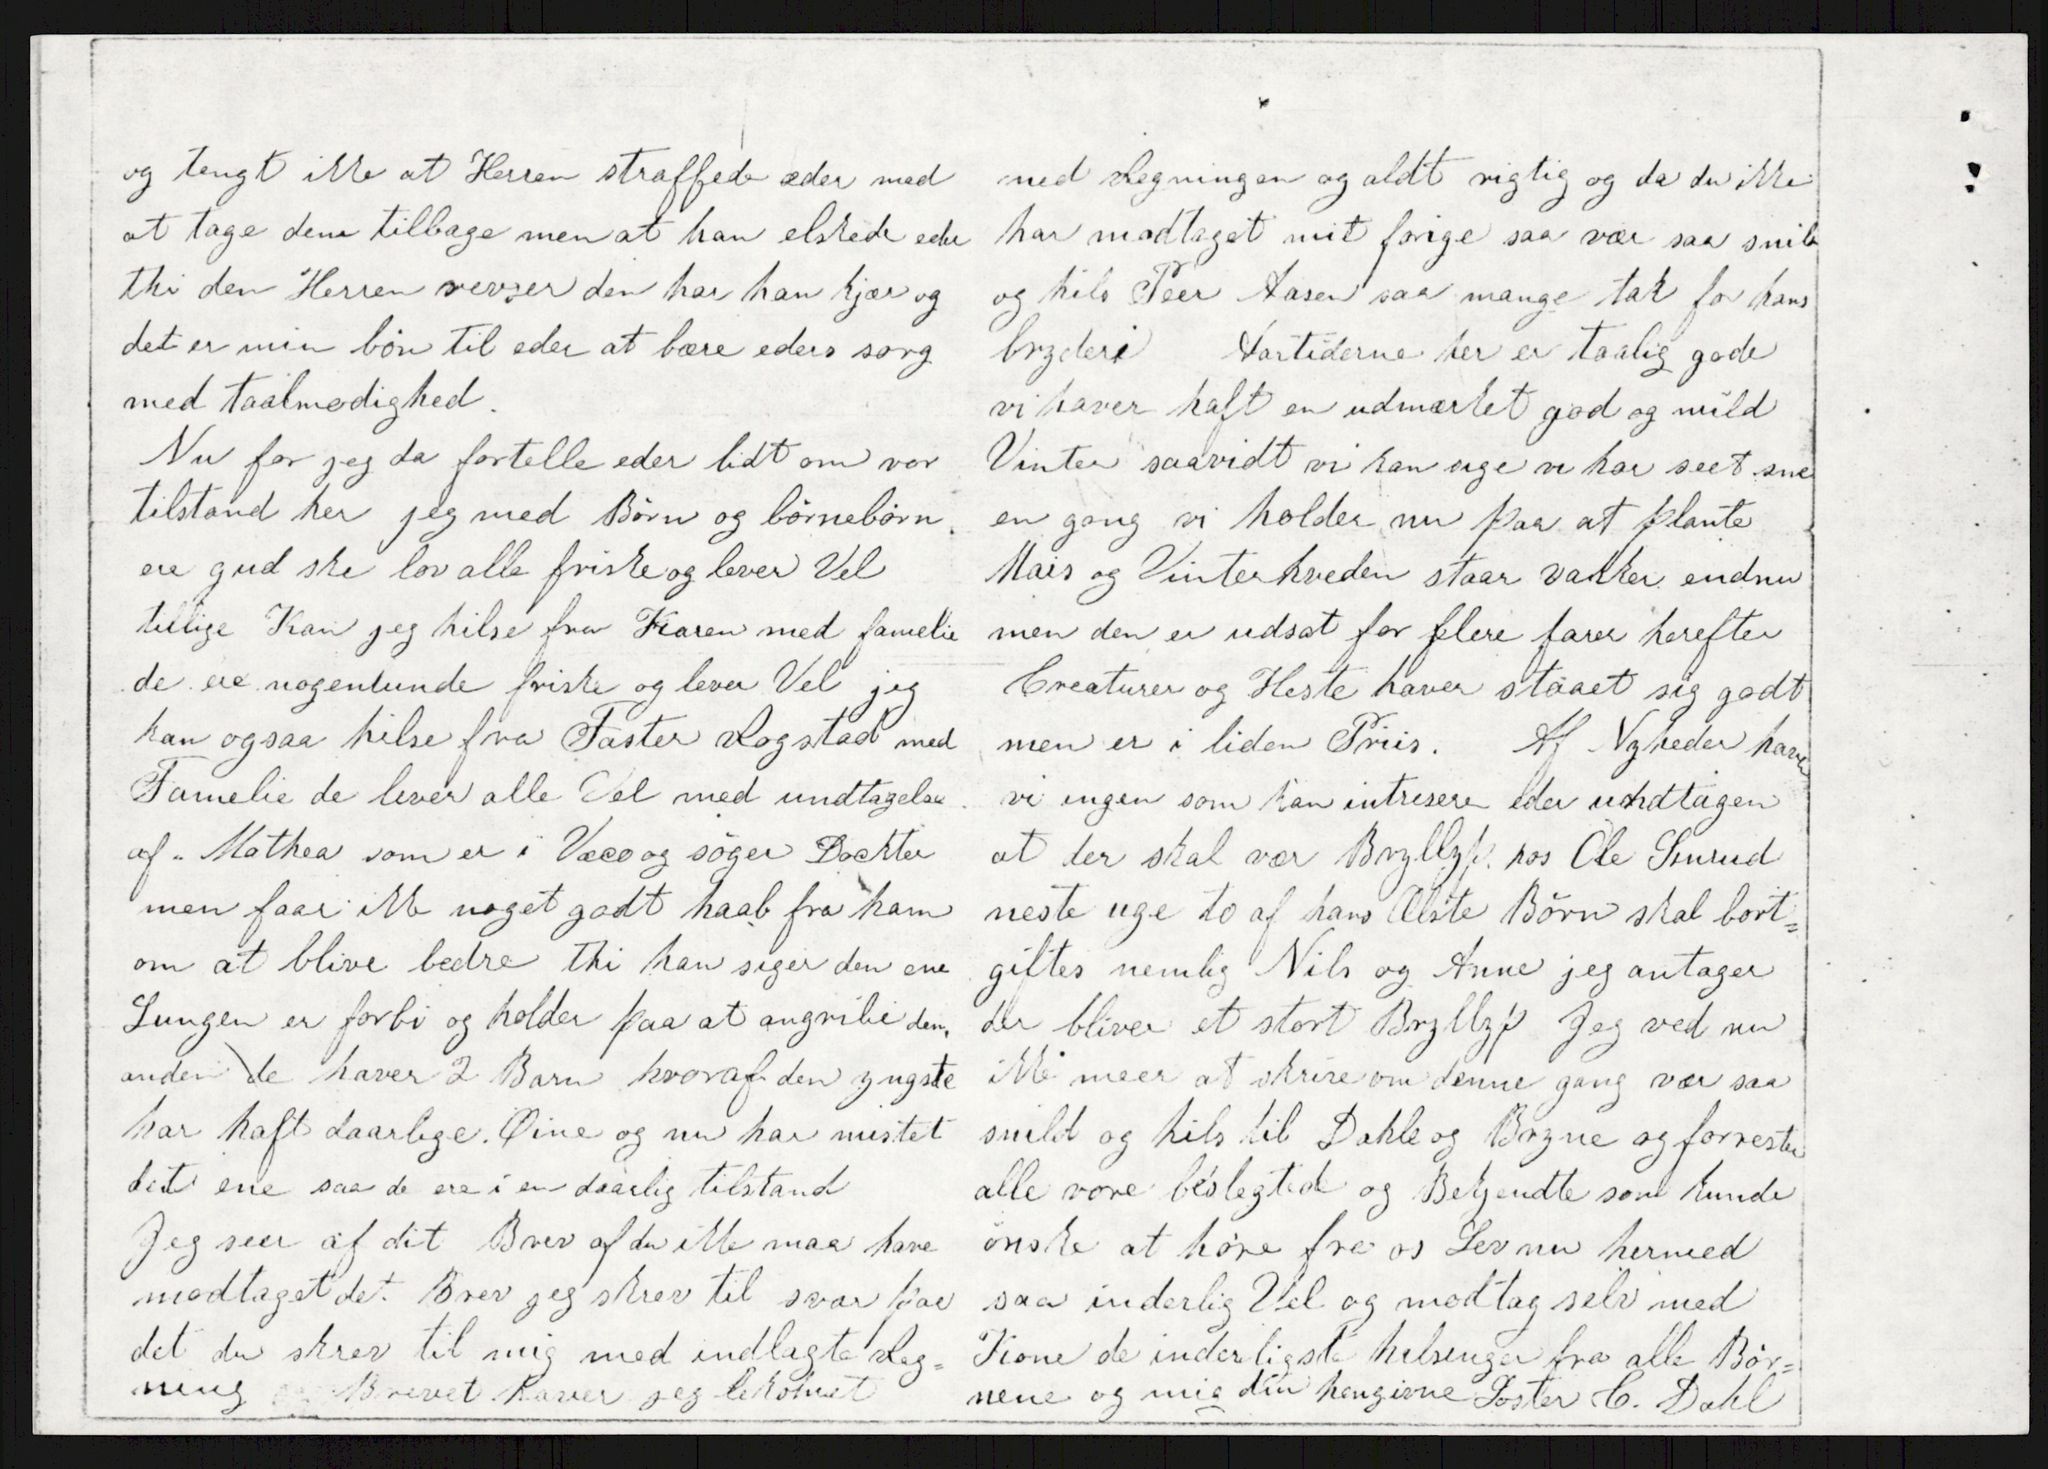 og tengt ikke at Herren straffede æder med
at tage dem tilbage men at han elskede eder
thi den Herren revser den har han kjær og
det er min bön til eder at bære eders sorg
med taalmodighed.
Nu for jeg da fortelle eder lidt om vor
tilstand her jeg med Börn og börnebörn
ere gud ske lov alle friske og lever Vel
tillige Kan jeg hilse fra Karen med famelie
de ere nogenlunde friske og lever Vel jeg
kan ogsaa hilse fra Faster Rogstad med
Famelie de lever alle Vel med undtagelse
af Mathea som er i Vaco og söger Dockter
men faar ikke noget godt haab fra ham
om at blive bedre thi han siger den ene
Lungen er forbi og holder paa at angribe den
anden de haver 2 Barn hvoraf den yngste
har haft daarlige Øine og nu har mistet
det ene saa de ere i en daarlig tilstand
Jeg seer af dit Brev at du ikke maa have
modtaget det Brev jeg skrev til svar paa
det du skrev til mig med indlagte Reg=
ning Brevet haver jeg bekomet
med Regningen og aldt rigtig og da du ikke
har modtaget mit forige saa vær saa snild
og hils Peer Aasen saa mange tak for hans
bryderi Aartiderne her er taalig gode
vi haver haft en udmærket god og mild
Vinter saavidt vi kan sige vi har seet sne
en gang vi holder nu paa at plante
Mais og Vinterhveden staar vakker endnu
men den er udsat for flere farer herefter
Creaturer og Heste haver staaet sig godt
men er i liden Priis. Af Nyheder have
vi ingen som kan intresere eder undtagen
at der skal vær Bryllyp hos Ole Smrud
neste uge to af hans Ælste Börn skal bort=
giftes nemlig Nils og Anne jeg antager
der bliver et stort Bryllyp Jeg ved nu
ikke meer at skrive om denne gang vær saa
snild og hils til Dahle og Bryne og forresten
alle vore beslegtede og Bekjendte som kunde
önske at höre fra os Lev nu hermed
saa inderlig Vel og modtag selv med
Kone de inderligste helsenger fra alle Bör=
nene og mig din hengivne Söster C. Dahl